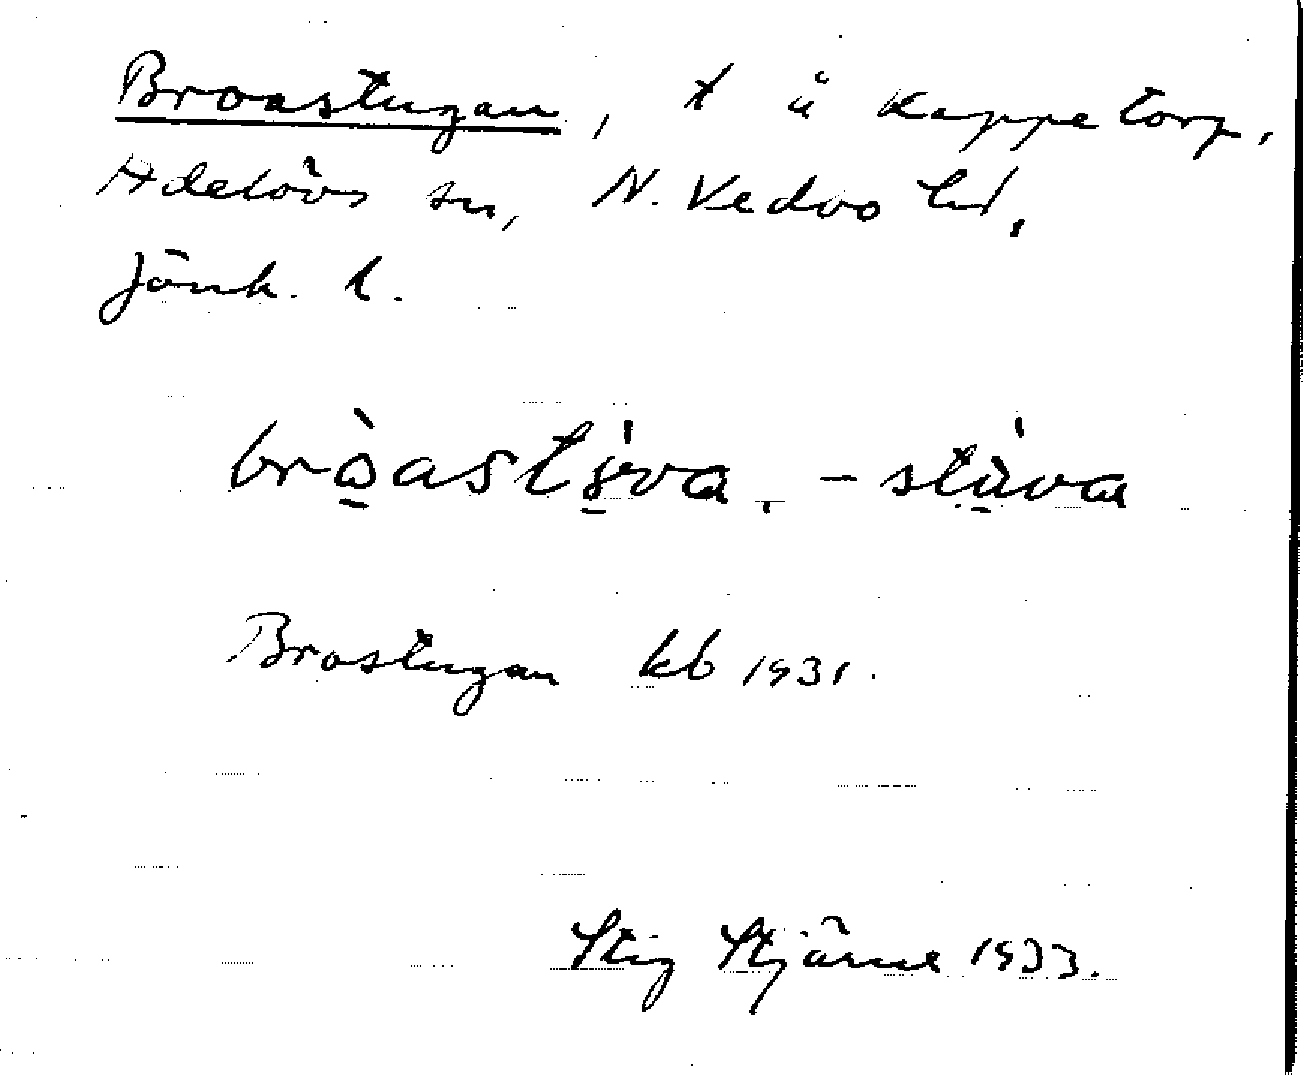 Broastugan, t å Kappetorp,
Adelövs sn, N. Vedbo hd,
Jönk. l.
bròastùva, -stùva
Brostugan kb 1931.
Stig Stjärne 1933.